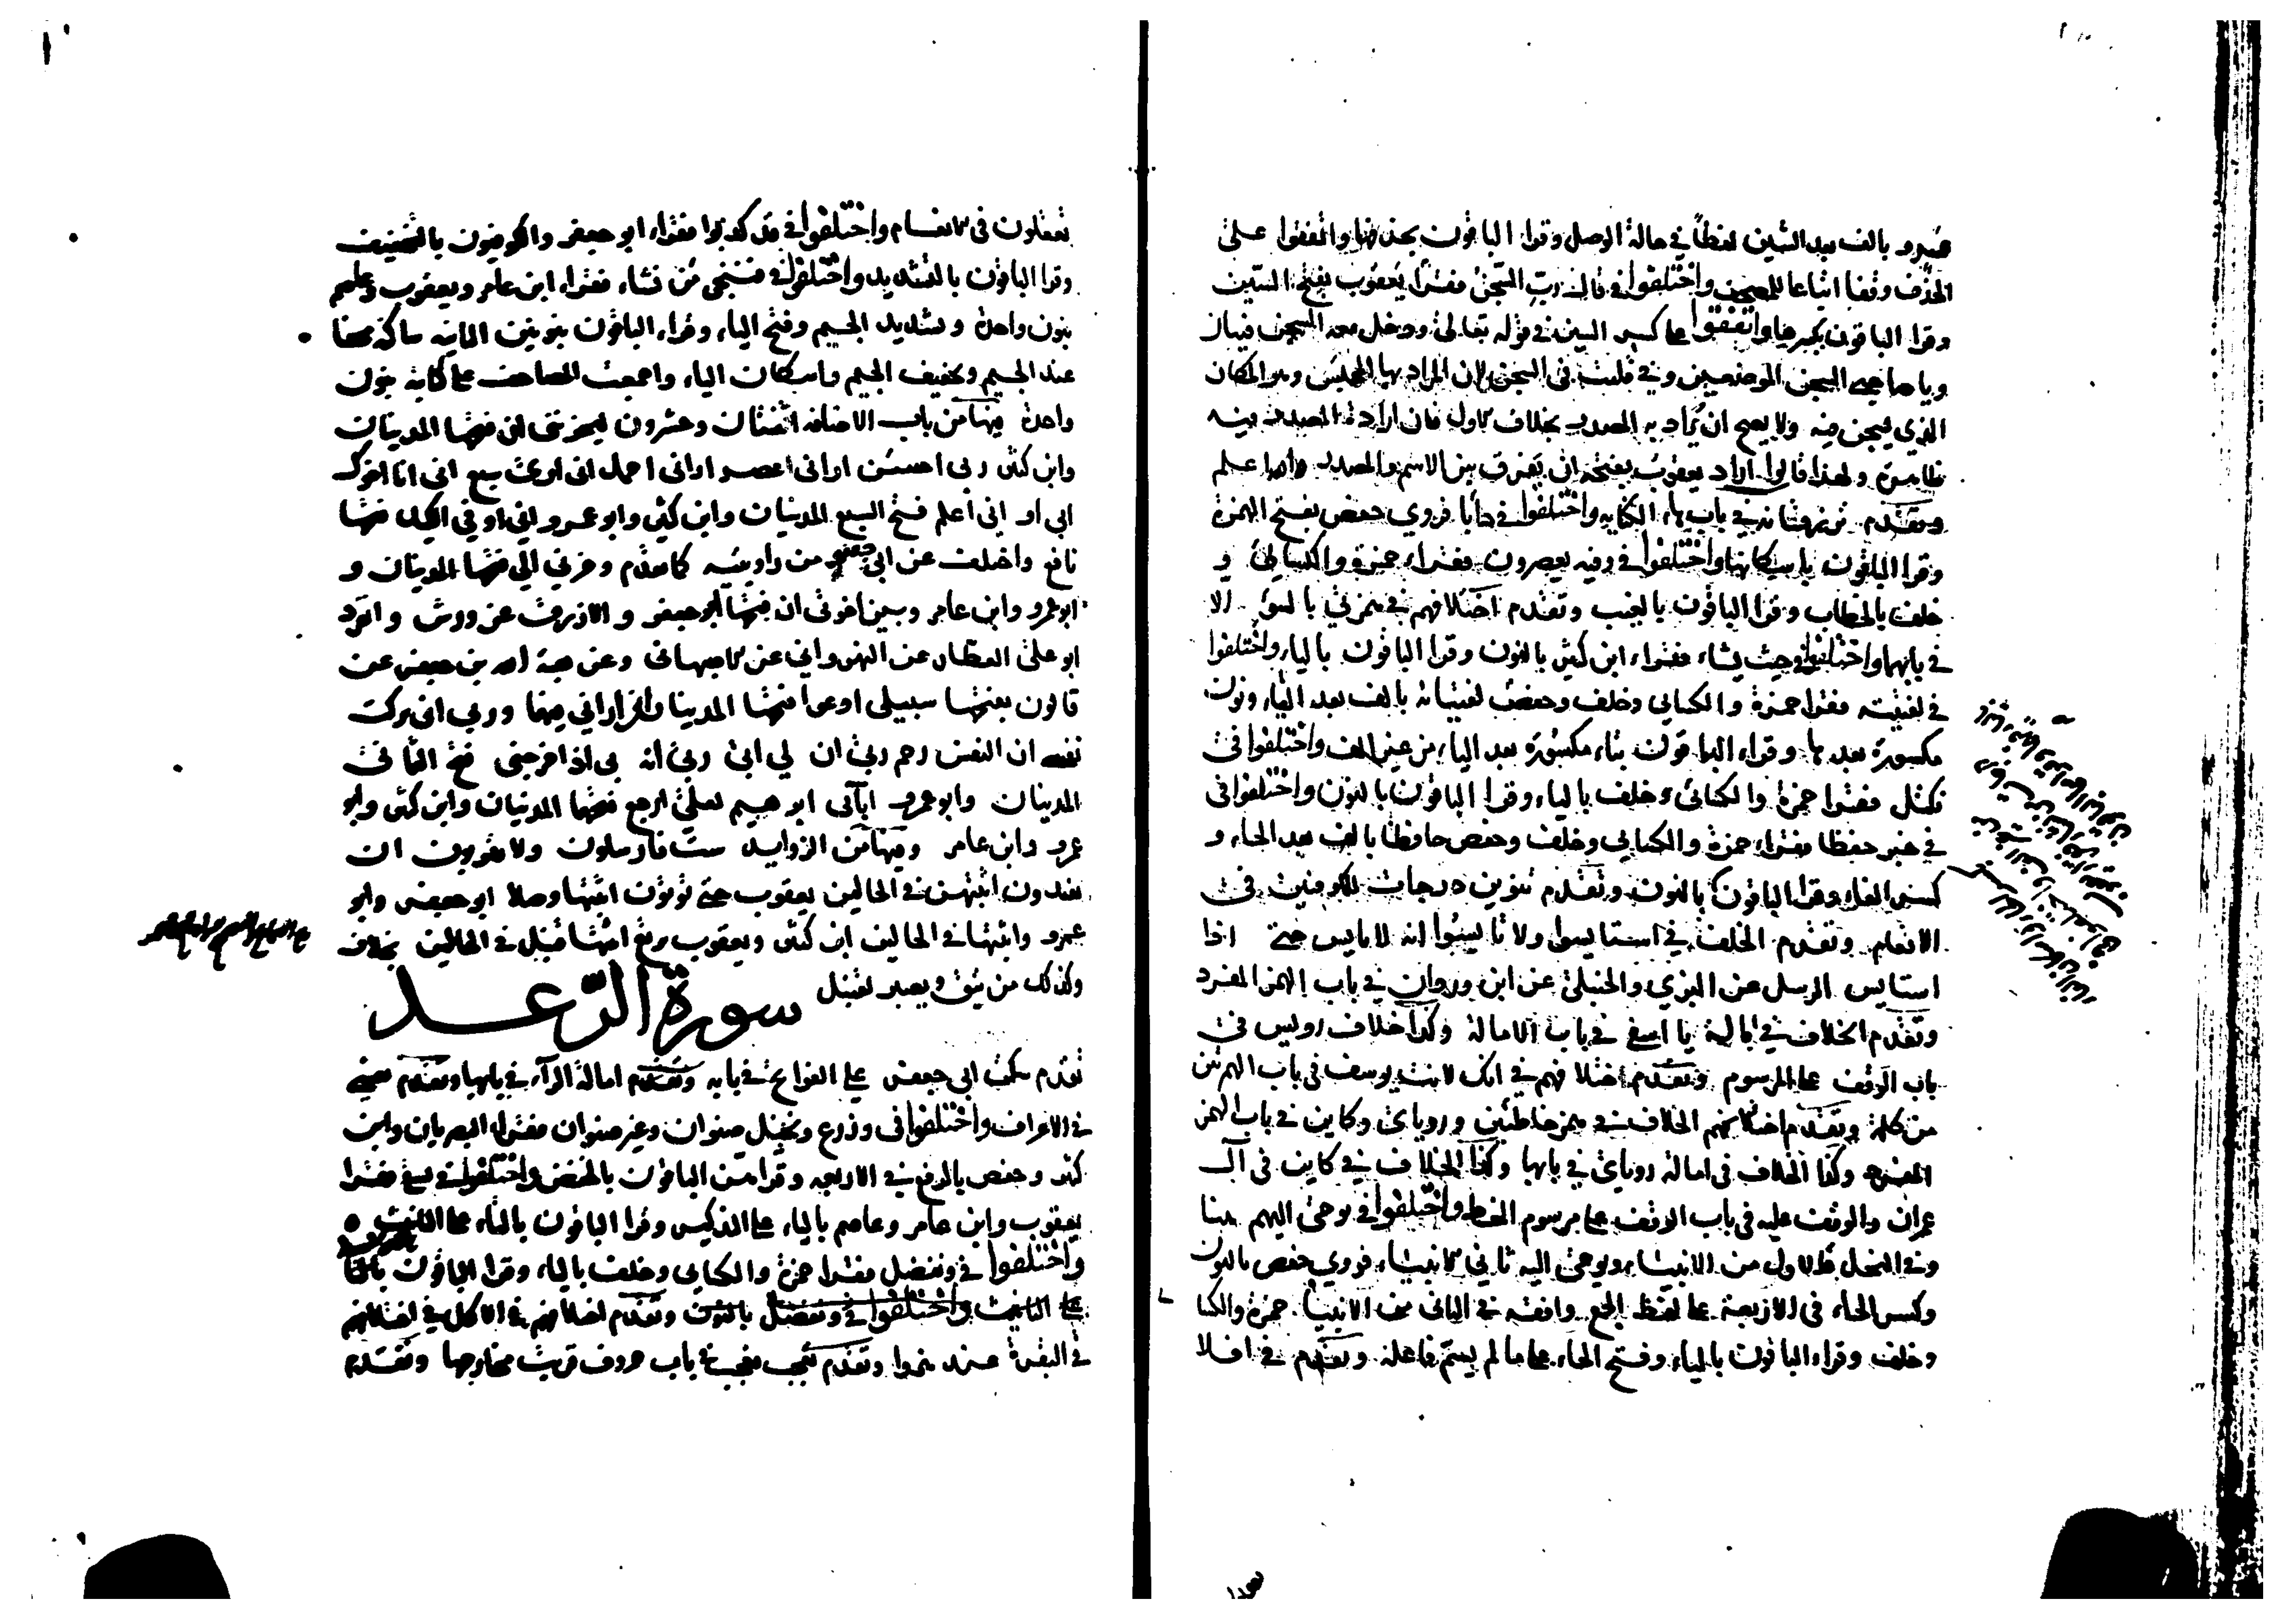 عمرو بالف بعد الشين لفظاً في حالة الوصل وقرا الباقون بحذفها واتفقوا على
الحذف وقفا اتباعا للمصحف واختلفوا في قال رب السجن فقرا يعقوب بفتح السين
وقرا الباقون بكسرها واتفقوا على كسر السين في قوله تعالى ودخل معه السجن فتيان
ويا صاحبي السجن الموضعين وفي فلبث في السجن لان المراد بها المحبس وهو المكان
الذي يسجن فيه ولا يصح ان يراد به المصدر بخلاف الاول فان ارادة المصدر فيه
ظاهرة ولهذا قالوا اراد يعقوب بفتحه ان يفرق بين الاسم والمصدر والله اعلم
وتقدم ترزقانه في باب هاء الكناية واختلفوا في دابا فروي حفص بفتح الهمزة
وقرا الباقون باسكانها واختلفوا في وفيه يعصرون فقراء حمزة والكسائي و
خلف بالخطاب وقرا الباقون بالغيب وتقدم اختلافهم في همزتي بالسوء الا
في بابهما واختلفوا في حيث يشاء فقراء ابن كثير بالنون وقرا الباقون بالياء واختلفوا
في لفتيته فقرا حمزة والكسائي وخلف وحفص لفتيانه بالف بعد الياء ونون
مكسورة بعدها وقراء الباقون بتاء مكسورة بعد الياء من غير الف واختلفوا في
نكتل فقرا حمزة والكسائي وخلف بالياء وقرا الباقون بالنون واختلفوا في
في خير حفظا فقراء حمزة والكسائي وخلف وحفص حافظا بالف بعد الحاء و
كسر الفاء وقرا الباقون بالنون وتقدم تنوين درجات للكوفيين في
الانعام وتقدم الخلف في استايسوا ولا تايسوا انه لا يايس حتى اذا
استايس الرسل عن البزي والحنبلي عن ابن وردان في باب الهمز المفرد
وتقدم الخلاف في امالة يا اسفي في باب الامالة وكذا خلاف رويس في
باب الوقف على المرسوم وتقدم اختلافهم في انك لانت يوسف في باب الهمزتين
من كلمة وتقدم اختلافهم الخلاف في همز خاطئين ورویاي وكاين في باب الهمز
المفرد وكذا الخلاف في امالة روياي في بابها وكذا الخلاف في كاين في آل
عمران والوقف عليه في باب الوقف على مرسوم الخط واختلفوا في نوحي اليهم هنا
وفي النحل والاول من الانبياء ونوحي اليه ثاني الانبياء فروي حفص بالنون
وكسر الحاء في الاربعة على لفظ الجمع وافقه في الثاني من الانبياء حمزة والكسا
وخلف وقراء الباقون بالياء وفتح الحاء على ما لم يسم فاعله وتقدم في افلا
تعقلون في الانعام واختلفوا في قد كذبوا فقراء ابو جعفر والكوفيون بالتخفيف
وقرا الباقون بالتشديد واختلفوا في فننجي من نشاء فقراء ابن عامر ويعقوب وعاصم
بنون واحدة وتشديد الجيم وفتح الياء وقراء الباقون بنونين الثانية ساكنة مخفاة
عند الجيم وتخفيف الجيم واسكان الياء واجمعت المصاحف على كتابته بنون
واحدة فيها من باب الاضافة اثنتان وعشرون ليحزنني ان فتحها المدنيان
وابن كثير ربي احسن اراني اعصر اراني احمل اني ارى سبع اني انا اخوك
ابي او اني اعلم فتح السبع المدنيان وابن كثير وابو عمرو اني اوفي الكيل فتحها
نافع واختلف عن ابي جعفر من راوييه كما تقدم وحزني الى فتحها المدنيان و
ابو عمرو وابن عامر وبين اخوتي ان فتحها ابو جعفر والازرق عن ورش وانفرد
ابو علي العطار عن النهرواني عن الاصبهاني وعن هبة الله بن جعفر عن
قالون بفتحها سبيلي ادعوا فتحها المدنيان اني اراني فيها وربي اني تركت
نفسي ان النفس رحم ربي ان لي ابي ربي انه بي اذ اخرجني فتح الثماني
المدنيان وابو عمرو ابآئي ابرهيم لعلي ارجع فتحها المدنيان وابن كثير وابو
عمرو وابن عامر وفيها من الزوايد ست فارسلون ولا تقربون ان
تفندون اثبتهن في الحالين يعقوب حتى تؤتون اثبتها وصلا ابو جعفر وابو
عمرو واثبتها في الحالين ابن كثير ويعقوب يرتع اثبتها قنبل في الحالين بخلاف
وكذلك من يتق ويصبر لقنبل
سورة الرعد
تقدم سكت ابي جعفر على الفواتح في بابه وتقدم امالة الرآء في بابها وتقدم يغشي
في الاعراف واختلفوا في وزرع ونخيل صنوان وغير صنوان فقراء البصريان وابن
كثير وحفص بالرفع في الاربعة وقراهن الباقون بالخفض واختلفوا في يسقى فقرا
يعقوب وابن عامر وعاصم بالياء على التذكير وقرا الباقون بالتاء على التانيث
واختلفوا في ونفضل فقرا حمزة والكسائي وخلف بالياء وقرا الباقون
على التانيث واختلفوا في ونفضل بالنون وتقدم اختلافهم في الاكل في
في البقرة عند هزوا وتقدم تعجب فعجب في باب حروف قربت مخارجها وتقدم